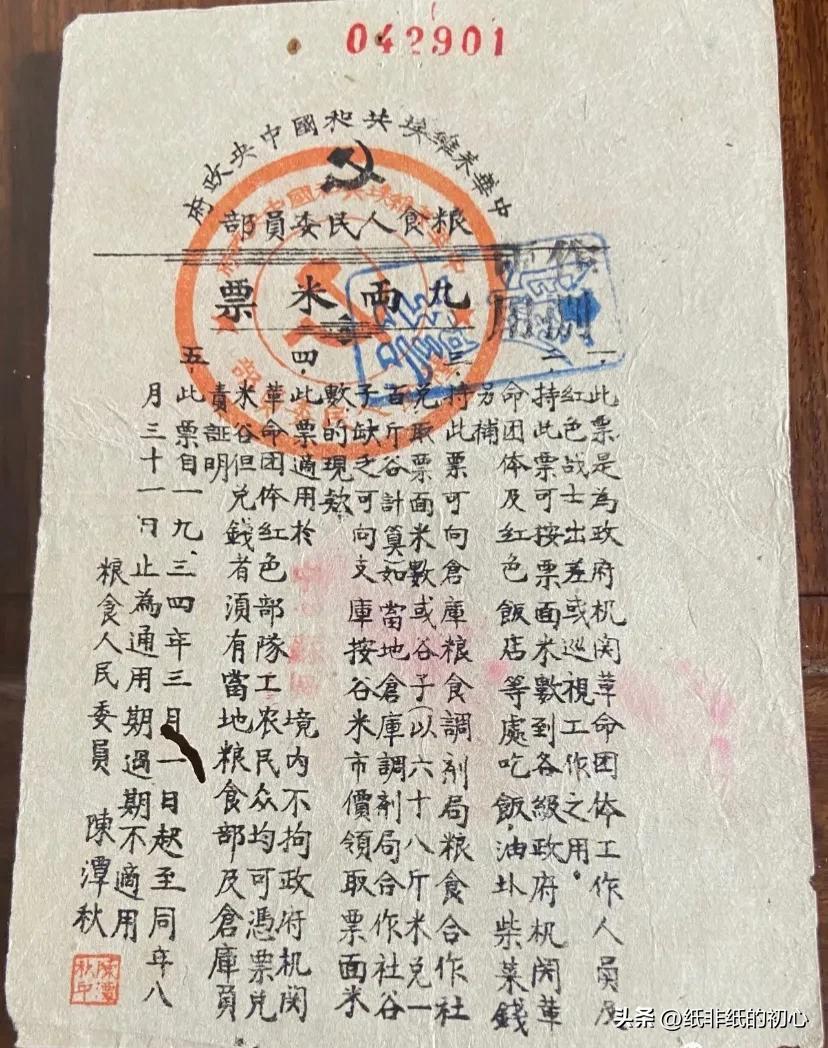 042901
中華苏維埃共和國中央政府
粮食人民委員部
九兩米票
一.此票是為政府机関革命团体工作人員及
紅色战士出差或巡視工作之用。
二.持此票可按票面米數到各級政府机関革
命团体及紅色飯店等處吃飯,油圤柴菜錢
另補
三.持此票可向倉庫粮食調剂局粮食合作社
兑取票面米數或谷子(以六十八斤米兑一
百斤谷計算如當地倉庫調剂局合作社谷
子缺乏可向支庫按谷米市價領取票面米
數的現欵
四.此票適用於 境内不拘政府机関
革命团体紅色部隊工农民众均可憑票兑
米谷但兑錢者須有當地粮食部及倉庫負
責証明
五.此票自一九三四年三月一日起至同年八
月三十一日止為通用期過期不適用
粮食人民委員 陳潭秋
陳潭秋印
头条 @纸非纸的初心